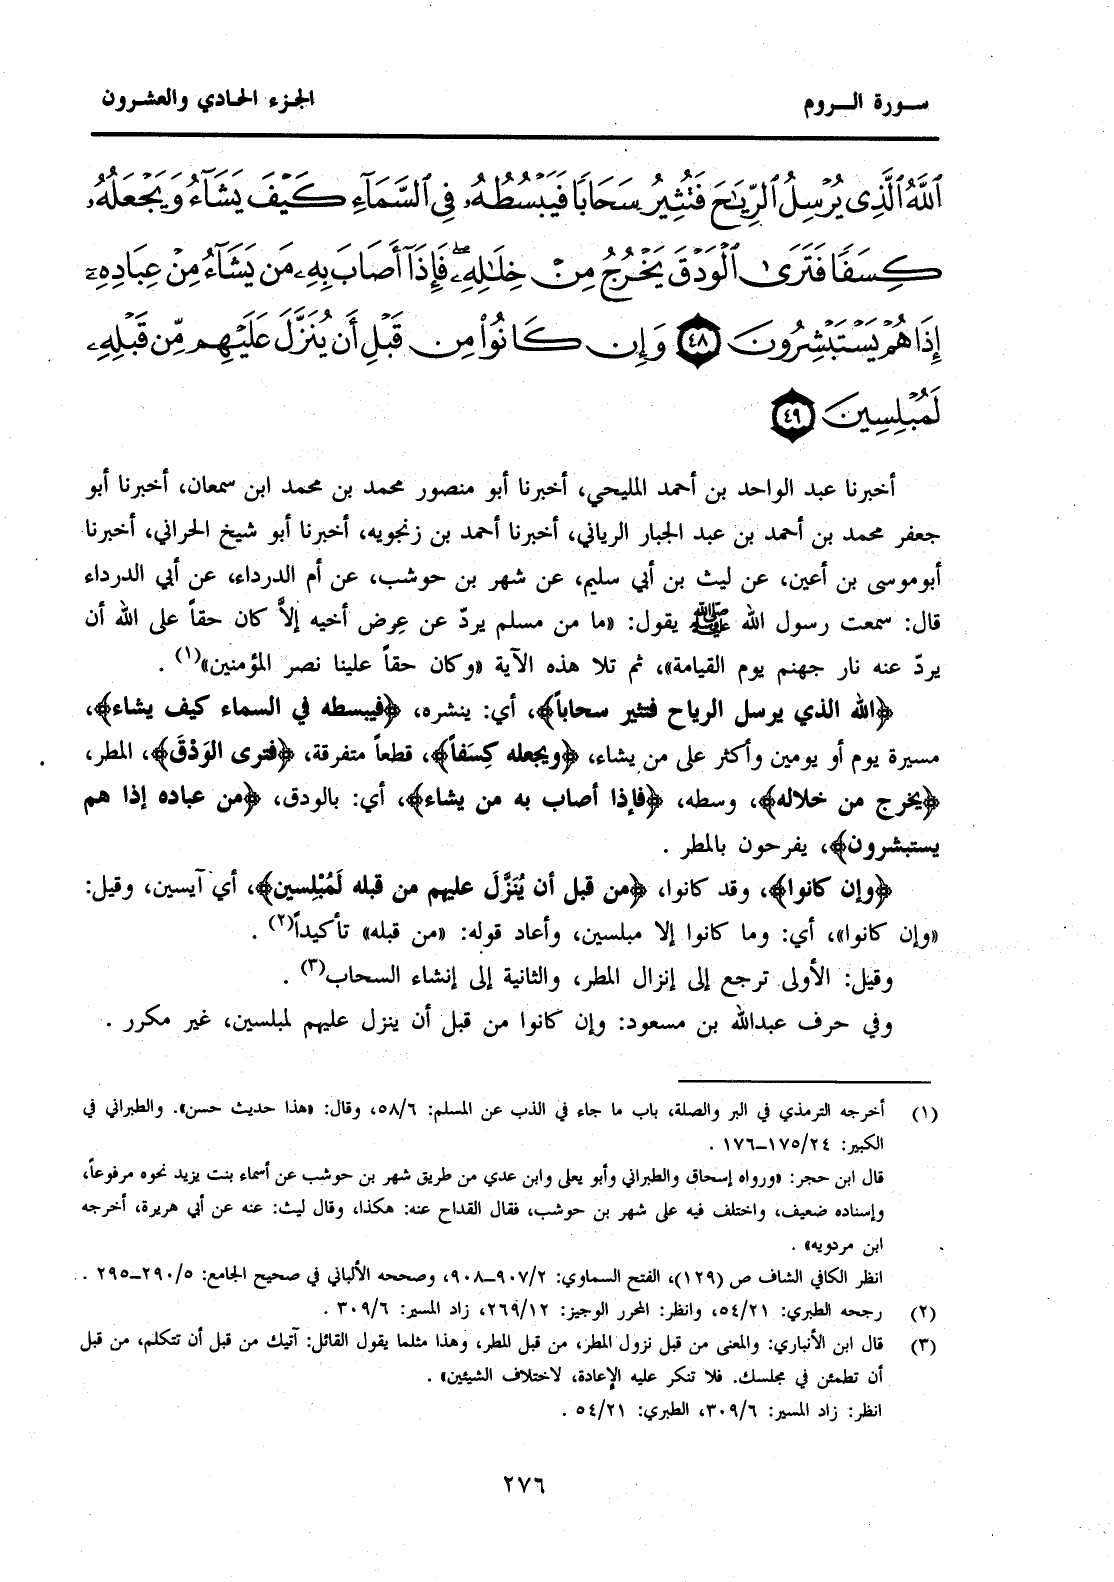 سورة الروم
الجزء الحادي والعشرون
ٱللَّهُ ٱلَّذِى يُرْسِلُ ٱلرِّيَٰحَ فَتُثِيرُ سَحَابًا فَيَبْسُطُهُۥ فِى ٱلسَّمَآءِ كَيْفَ يَشَآءُ وَيَجْعَلُهُۥ
كِسَفًا فَتَرَى ٱلْوَدْقَ يَخْرُجُ مِنْ خِلَٰلِهِۦ ۖ فَإِذَآ أَصَابَ بِهِۦ مَن يَشَآءُ مِنْ عِبَادِهِۦٓ
إِذَا هُمْ يَسْتَبْشِرُونَ ٤٨ وَإِن كَانُوا۟ مِن قَبْلِ أَن يُنَزَّلَ عَلَيْهِم مِّن قَبْلِهِۦ
لَمُبْلِسِينَ ٤٩
أخبرنا عبد الواحد بن أحمد المليحي، أخبرنا أبو منصور محمد بن محمد ابن سمعان، أخبرنا أبو
جعفر محمد بن أحمد بن عبد الجبار الرياني، أخبرنا أحمد بن زنجويه، أخبرنا أبو شيخ الحراني، أخبرنا
أبوموسى بن أعين، عن ليث بن أبي سليم، عن شهر بن حوشب، عن أم الدرداء، عن أبي الدرداء
قال: سمعت رسول الله ﷺ يقول: «ما من مسلم يردّ عن عِرض أخيه إلاَّ كان حقاً على الله أن
يردّ عنه نار جهنم يوم القيامة»، ثم تلا هذه الآية «وكان حقاً علينا نصر المؤمنين»(١) .
﴿الله الذي يرسل الرياح فتثير سحاباً﴾، أي: ينشره، ﴿فيبسطه في السماء كيف يشاء﴾،
مسيرة يوم أو يومين وأكثر على من يشاء، ﴿ويجعله كِسَفاً﴾، قطعاً متفرقة، ﴿فترى الوَدْقَ﴾، المطر،
﴿يخرج من خلاله﴾، وسطه، ﴿فإذا أصاب به من يشاء﴾، أي: بالودق، ﴿من عباده إذا هم
يستبشرون﴾، يفرحون بالمطر .
﴿وإن كانوا﴾، وقد كانوا، ﴿من قبل أن يُنَزَّلَ عليهم من قبله لَمُبْلِسين﴾، أي آيسين، وقيل:
«وإن كانوا»، أي: وما كانوا إلا مبلسين، وأعاد قوله: «من قبله» تأكيداً(٢) .
وقيل: الأولى ترجع إلى إنزال المطر، والثانية إلى إنشاء السحاب(٣) .
وفي حرف عبدالله بن مسعود: وإن كانوا من قبل أن ينزل عليهم لمبلسين، غير مكرر .
(١) أخرجه الترمذي في البر والصلة، باب ما جاء في الذب عن المسلم: ٥٨/٦، وقال: «هذا حديث حسن». والطبراني في
الكبير: ١٧٥/٢٤-١٧٦ .
قال ابن حجر: «ورواه إسحاق والطبراني وأبو يعلى وابن عدي من طريق شهر بن حوشب عن أسماء بنت يزيد نحوه مرفوعاً،
وإسناده ضعيف، واختلف فيه على شهر بن حوشب، فقال القداح عنه: هكذا، وقال ليث: عنه عن أبي هريرة، أخرجه
ابن مردويه» .
انظر الكافي الشاف ص (١٢٩)، الفتح السماوي: ٩٠٧/٢-٩٠٨، وصححه الألباني في صحيح الجامع: ٢٩٠/٥-٢٩٥ .
(٢) رجحه الطبري: ٥٤/٢١، وانظر: المحرر الوجيز: ٢٦٩/١٢، زاد المسير: ٣٠٩/٦ .
(٣) قال ابن الأنباري: والمعنى من قبل نزول المطر، من قبل المطر، وهذا مثلما يقول القائل: آتيك من قبل أن تتكلم، من قبل
أن تطمئن في مجلسك. فلا تنكر عليه الإعادة، لاختلاف الشيئين» .
انظر: زاد المسير: ٣٠٩/٦، الطبري: ٥٤/٢١ .
٢٧٦